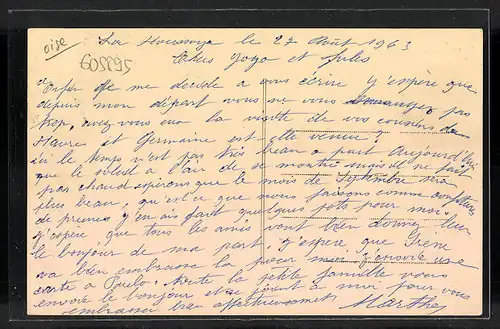 oise
605895
La Houssoye le 27 Août 1963
Chers Yoyo et Jules
Enfin je me décide a vous écrire j'espère que
depuis mon départ vous ne vous pas
trop, avez vous eu la visite de vos cousins du
Havre et Germaine est-elle venue?
ici le temps n'est pas très beau a part Aujourd'hui
que le soleil a l'air de se montré mais il ne fait
pas chaud espérons que le mois de Septembre sera
plus beau, qu'est ce que nous faisons comme confiture
de prunes j'en ais fait quelques pots pour moi.
j'espère que tous les amis vont bien donner leur
le bonjour de ma part, j'espère que Irène
va bien embrasse la pour moi j'envoie une
carte a Toute la petite famille vous
envoie le bonjour et se joint a moi pour vous
embrasser bien affectueusement Marthe